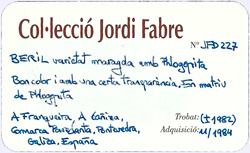 Col·lecció Jordi Fabre
Nº JFD227
BERIL varietat maragda amb Phlogopita
Bon color i amb una certa transparència, En matriu
de Phlogopita
A Franqueira, A Cañiza,
Comarca Paradanta, Pontevedra,
Galiza, España
Trobat: (±1982)
Adquisició: 11/1984